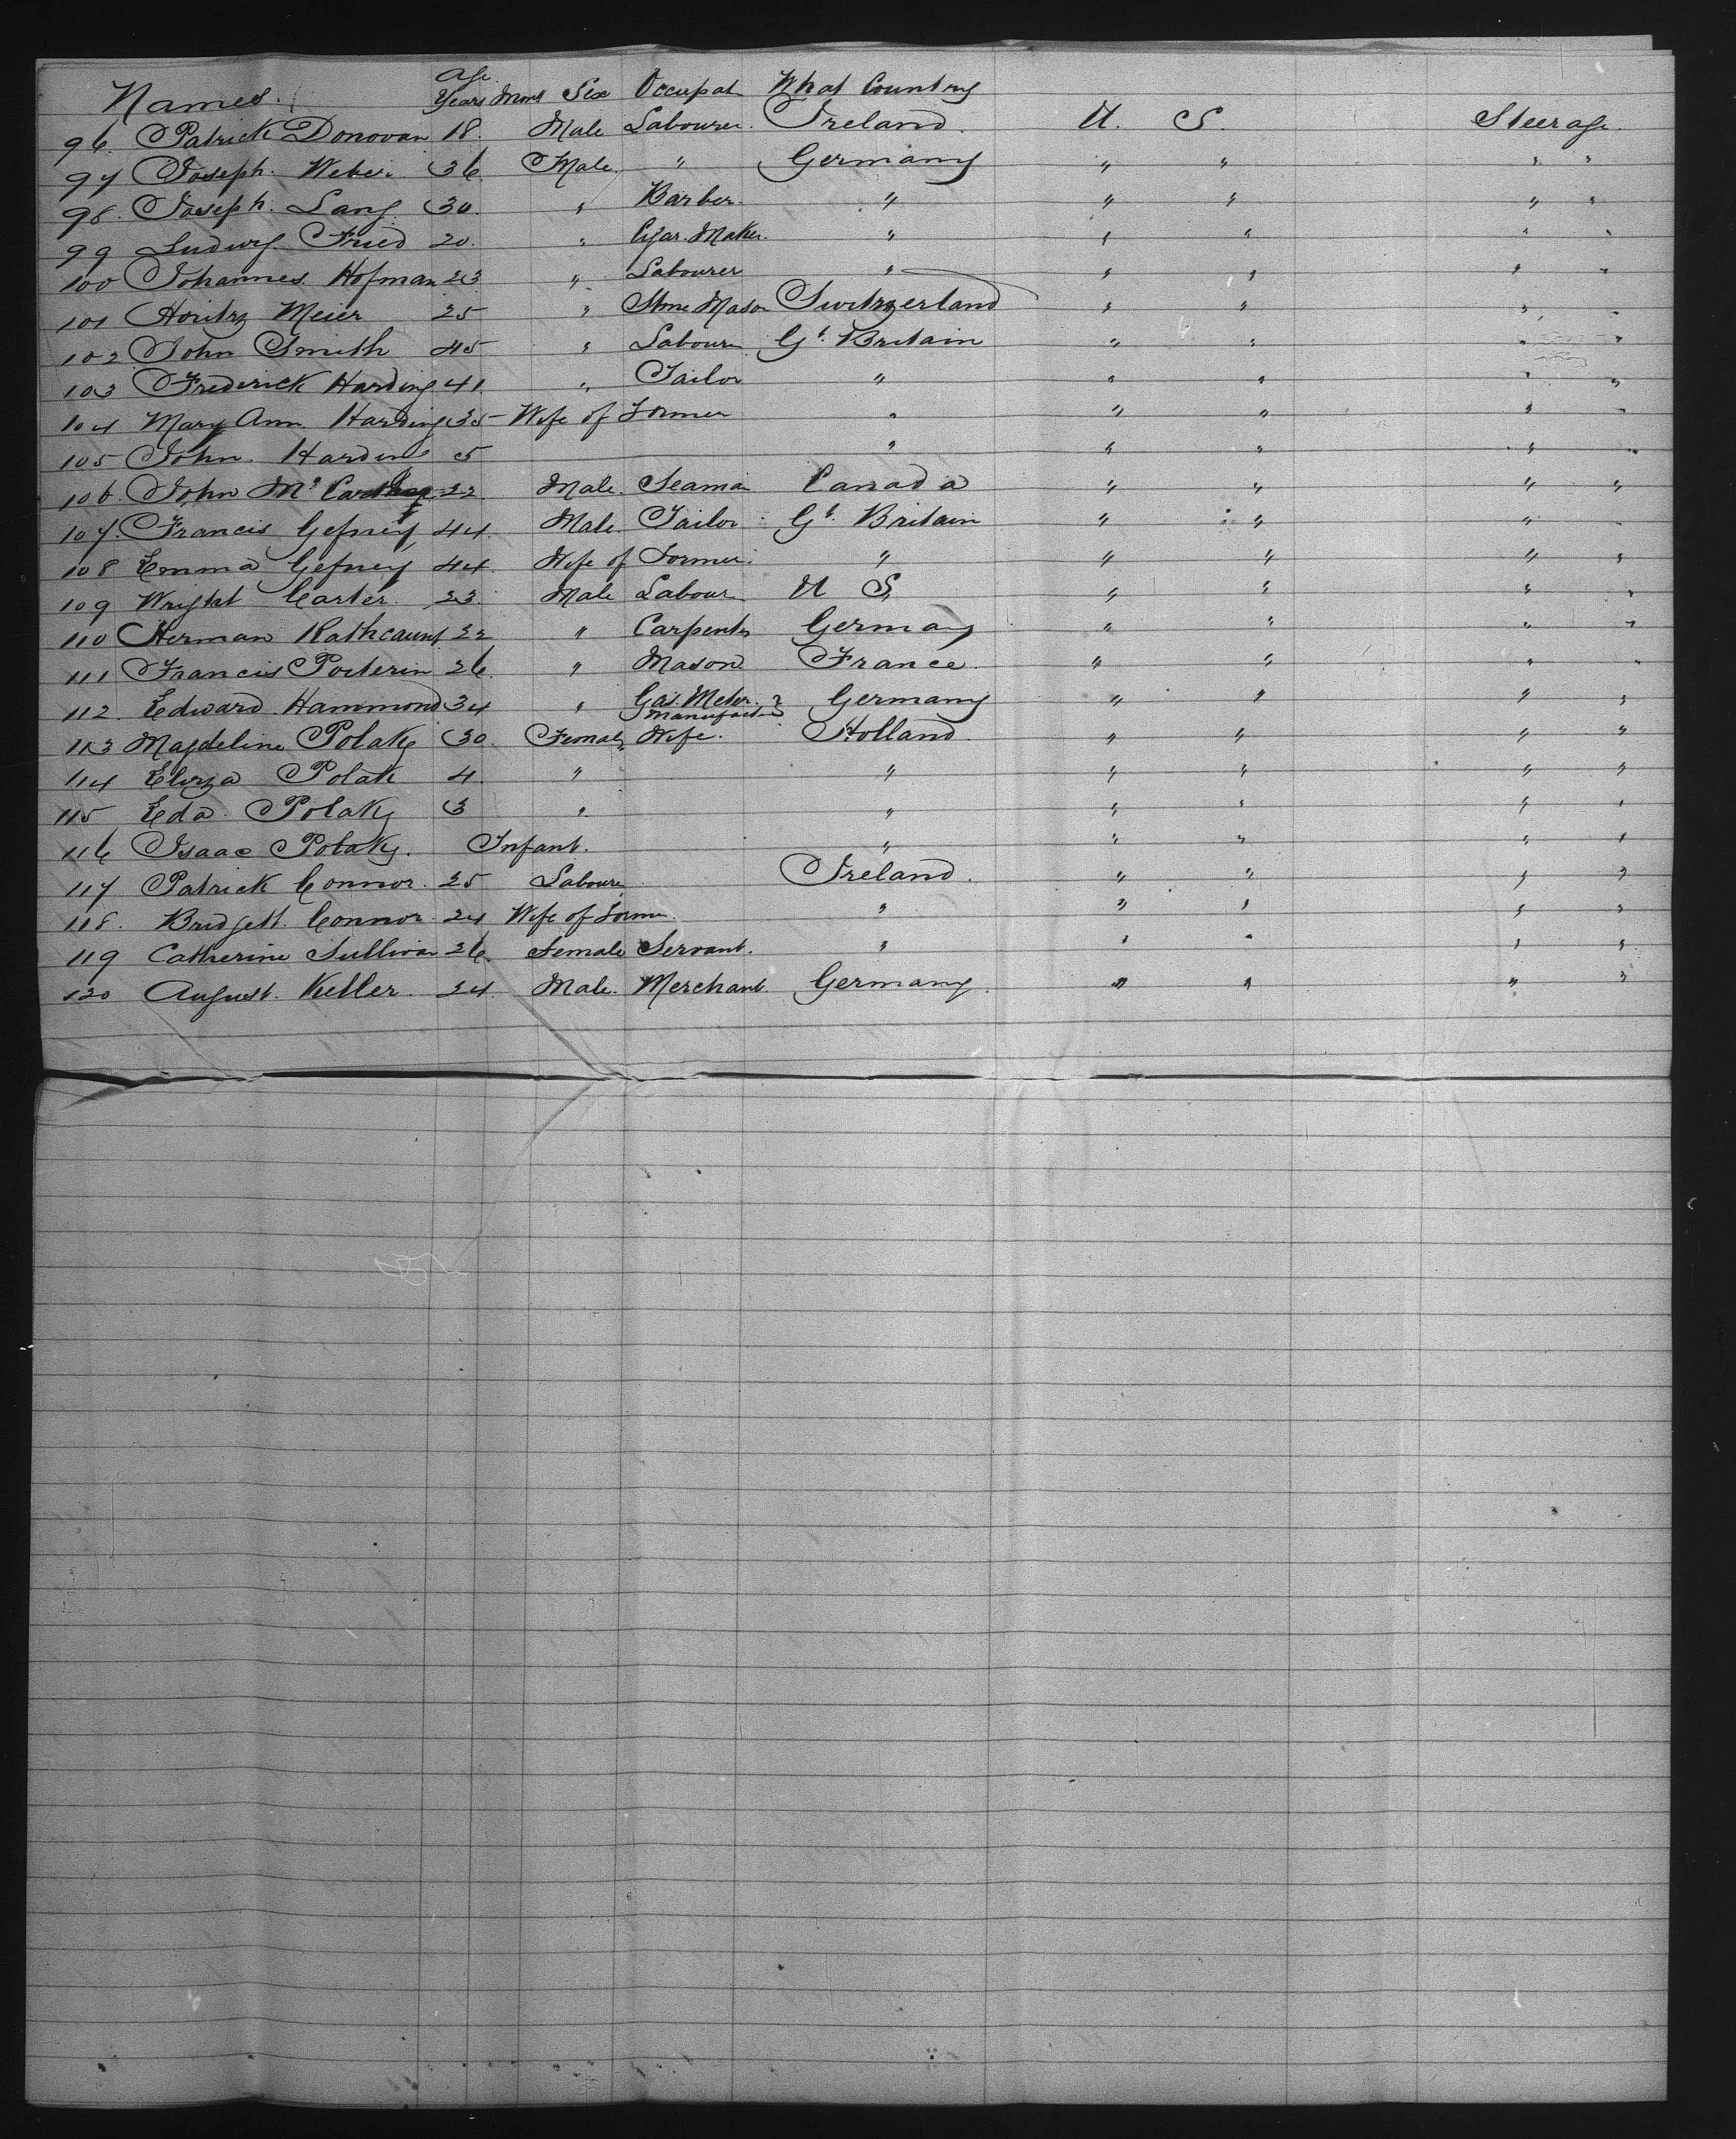 Names. Age Years Mont Sex Occupat What Country
96. Patrick Donovan 18. Male Labourer. Ireland. U. S. Steerage.
97 Joseph. Weber 36 Male. " Germany " " " "
98. Joseph. Lang 30. " Barber. " " " " "
99 Ludwig Fried 20. " Cigar. Maker. " " " " "
100 Johannes Hofman 23 " Labourer " " " " "
101 Moritz Meier 25 " Stone Mason Switzerland " " " "
102 John Smith 45 " Labour Gt. Britain " " " "
103 Frederick Harding 41. " Tailor " " " " "
104 Mary Ann Harding 35 Wife of Former " " " " "
105 John. Harding 5 " " " " "
106. John Mc Carthy 22. Male. Seaman Canada " " " "
107. Francis 44. Male. Tailor Gt. Britain " " " "
108 Emma 44. Wife of Former. " " " " "
109 Wright Carter. 23. Male Labour U S " " " "
110 Herman 22 " Carpenter Germany " " " "
111 Francis 26. " Mason France. " " " "
112. Edward Hammond 34 " Gas. Meter Manufact Germany " " " "
113 Magdeline Polak 30. Female Wife. Holland. " " " "
114 Eliza Polak 4. " " " " " "
115 Eda Polak 3 " " " " " "
116 Isaac Polak. Infant. " " " " "
117 Patrick Connor. 25 Labour Ireland. " " " "
118. Bridgett. Connor 24 Wife of Former. " " " " "
119 Catherine Sullivan 26. Female Servant. " " " " "
120 August. Keller. 24. Male. Merchant. Germany. " " " "